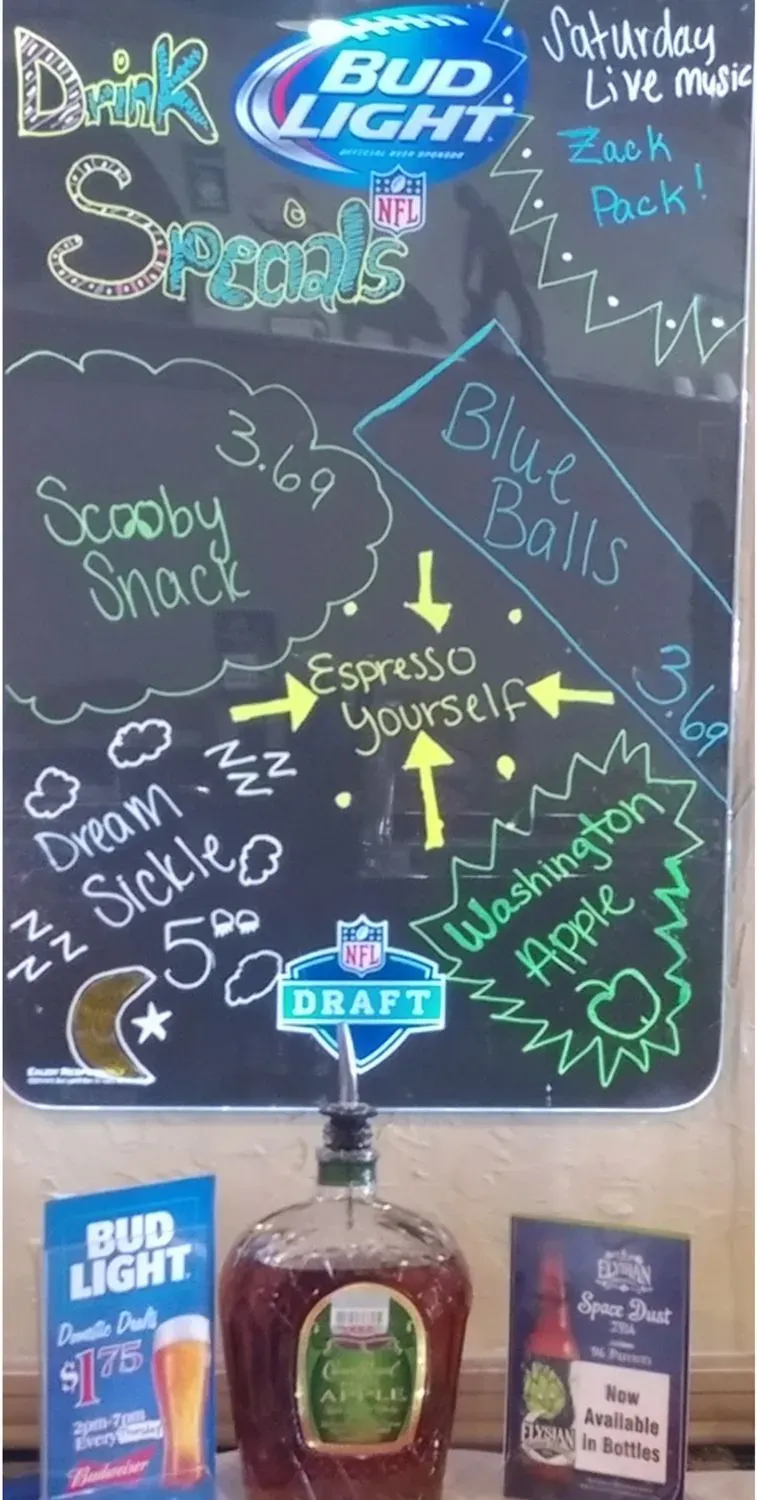 Drink
Specials
BUD
LIGHT
OFFICIAL BEER SPONSOR
NFL
Saturday
Live music
Zack
Pack!
3.69
Scooby
Snack
Blue
Balls
3.69
Espresso
yourself
Z
Z
Z Z
Dream
Sickle
5.00
Z
Z Z
Washington
Apple
NFL
DRAFT
BUD
LIGHT
Domestic Drafts
$1.75
2pm-7pm
Every Thursday
Budweiser
APPLE
ELYSIAN
Space Dust
IPA
ELYSIAN
Now
Available
in Bottles